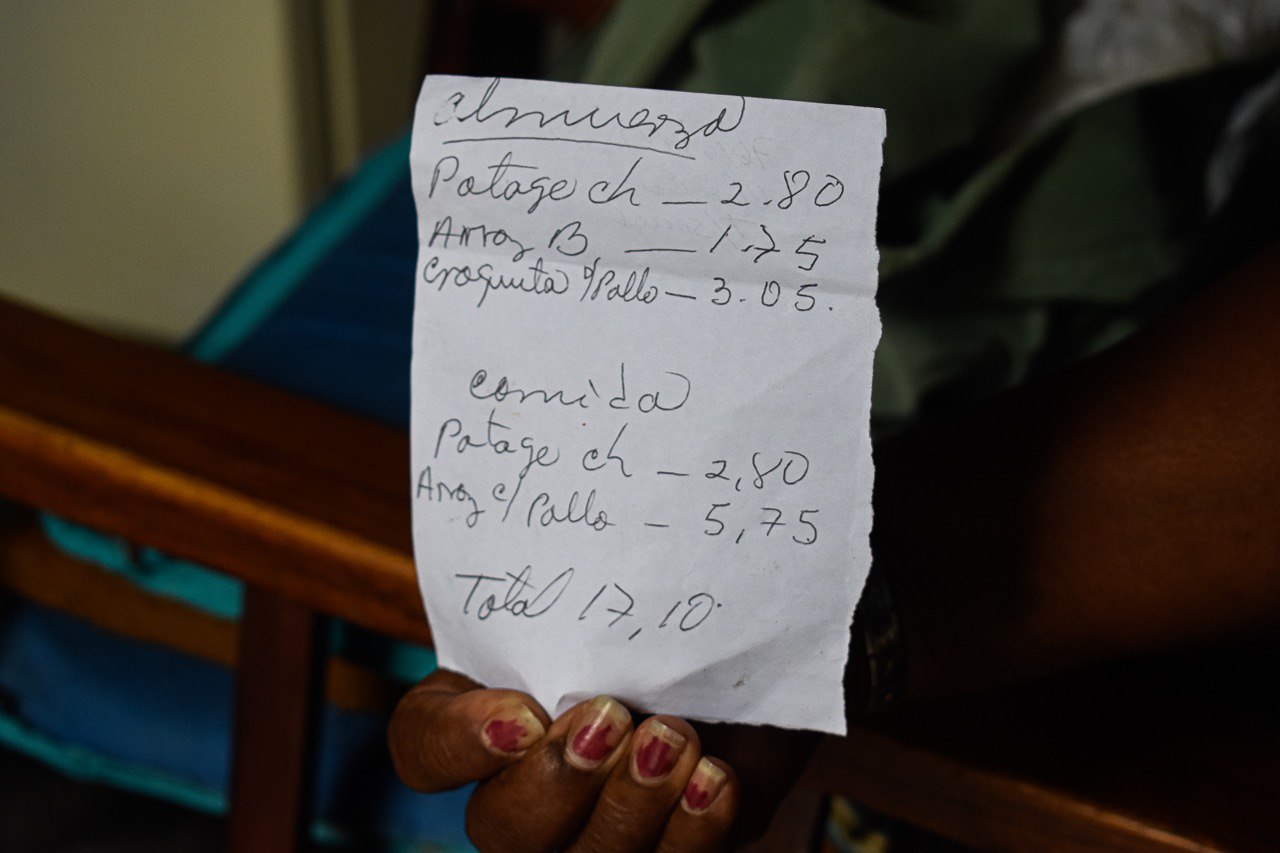 almuerzo
Potage ch — 2.80
Arroz B — 1.75
Croquita d/Pollo — 3.05.
comida
Potage ch — 2,80
Arroz c/ Pollo — 5,75
Total 17,10